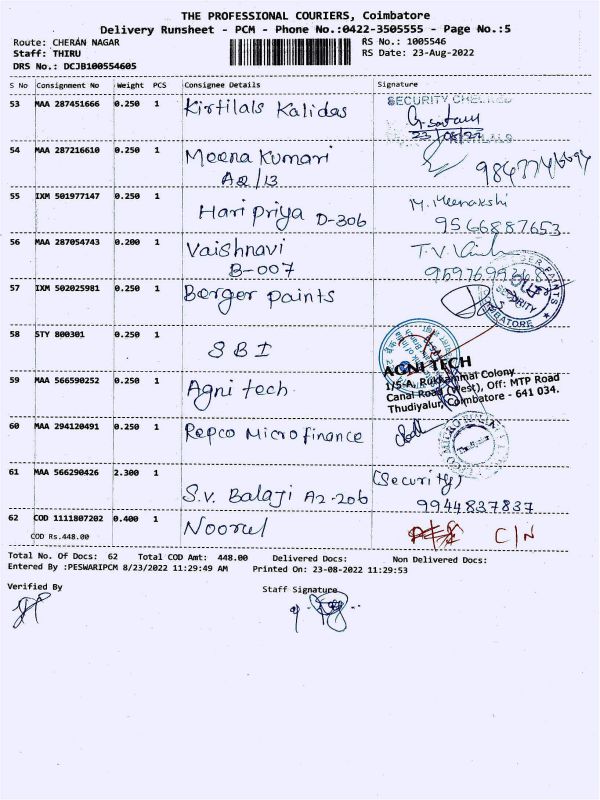 THE PROFESSIONAL COURIERS, Coimbatore
Delivery Runsheet - PCM - Phone No.:0422-3505555 - Page No.:5
Route: CHERAN NAGAR
Staff: THIRU
DRS No.: DCJB100554605
RS No.: 1005546
RS Date: 23-Aug-2022
S No Consignment No Weight PCS Consignee Details Signature
53 MAA 287451666 0.250 1 Kirtilals Kalidas
SECURITY CHECKED
23/08/22
54 MAA 287216610 0.250 1 Meena Kumari
A2/13
55 IXM 501977147 0.250 1 Hari priya D-306
M. Meenakshi
9566887653
56 MAA 287054743 0.200 1 Vaishnavi
B-007
57 IXM 502025981 0.250 1 Berger paints
BERGER PAINTS
OUT
SECURITY
COIMBATORE
58 STY 800301 0.250 1 SBI
59 MAA 566590252 0.250 1 Agni tech.
AGNI TECH
1/5-A, Rukkammal Colony
Canal Road (West), Off: MTP Road
Thudiyalur, Coimbatore - 641 034.
60 MAA 294120491 0.250 1 Repco Microfinance
61 MAA 566290426 2.300 1 S.V. Balaji A2-206
(Security)
9944837837
62 COD 1111807202 0.400 1 Noorul
C/N
COD Rs.448.00
Total No. Of Docs: 62 Total COD Amt: 448.00 Delivered Docs: Non Delivered Docs:
Entered By :PESWARIPCM 8/23/2022 11:29:49 AM Printed On: 23-08-2022 11:29:53
Verified By
Staff Signature